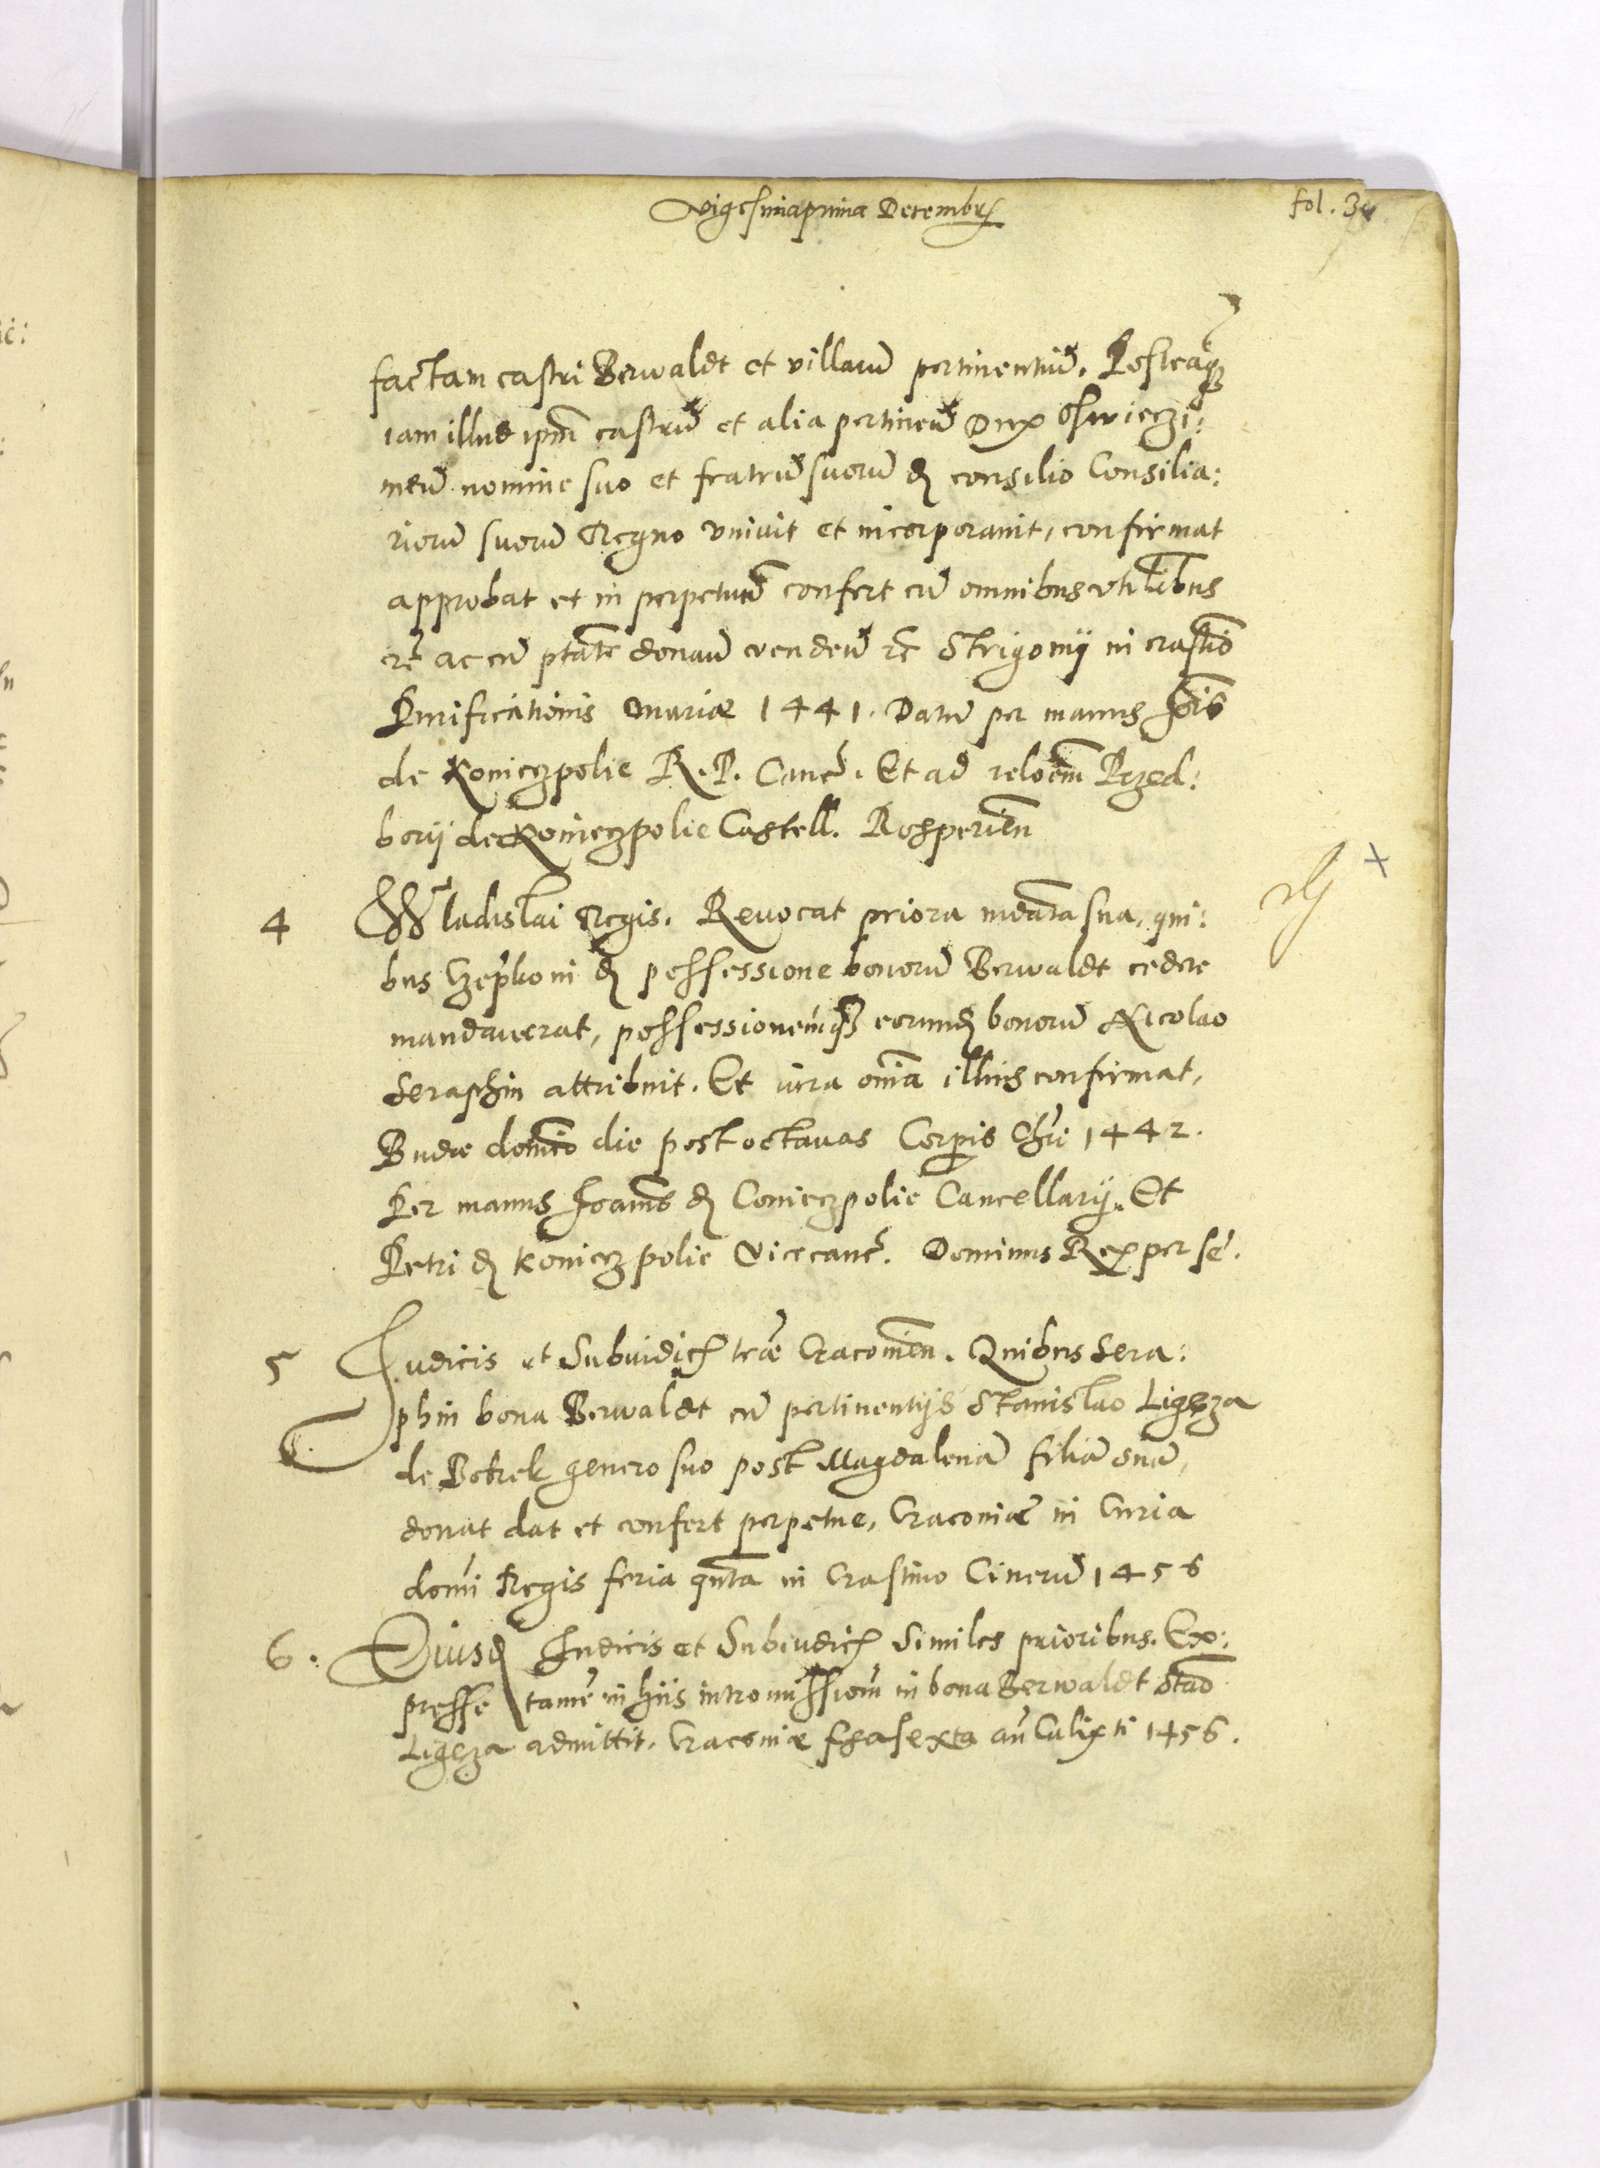 Vigesimaprima Decembris
fol. 34
factam castri Berwaldt et villarū pertinentiū. Posteaq
iam illud ipm̄ castrū et alia pertineñ Dux Oswieczi:
meñ nomine suo et fratrū suorū de consilio Consilia:
riorū suorū Regno univit et incorporavit, confirmat
approbat et in perpetuū confert cū omnibus utilitbus
etc̄ ac cū ptāte donañ vendeñ etc̄ Strigonij in crastio
Purificationis Mariæ 1441. Datū per manus Jois
de Koniecpolie R. P. Canc. Et ad reloēm Przed:
borij de Konieczpolie Castell. Rosperien
4 Wladislai Regis. Revocat priora mdata sua, qui:
bus Czepkoni de possessione bonorū Berwaldt cedere
mandaverat, possessionemq eorund bonorū Nicolao
Seraphin attribuit. Et iura omīa illius confirmat,
Budæ domico die post octavas Corpis Chri 1442.
Per manus Joannis de Conieczpolie Cancellarij. Et
Petri de Konieczpolie Vicecanc. Dominus Rex per se.
5 Judicis et Subiudicis træ Cracovien. Quibus Sera:
phin bona Berwaldt cū pertinentijs Stanislao Ligęza
de Botrek genero suo post Magdalenā filiā suā,
donat dat et confert perpetue, Cracoviæ in Curia
domi Regis feria qnta in Crastino Cinerū 1456
6. Eiusd Judicis et Subiudicis Similes prioribus. Ex:
presse tamē in hijs intromissiom in bona Berwaldt Stao
Ligęza admittit. Cracoviæ fria sexta añ Calixti 1456.